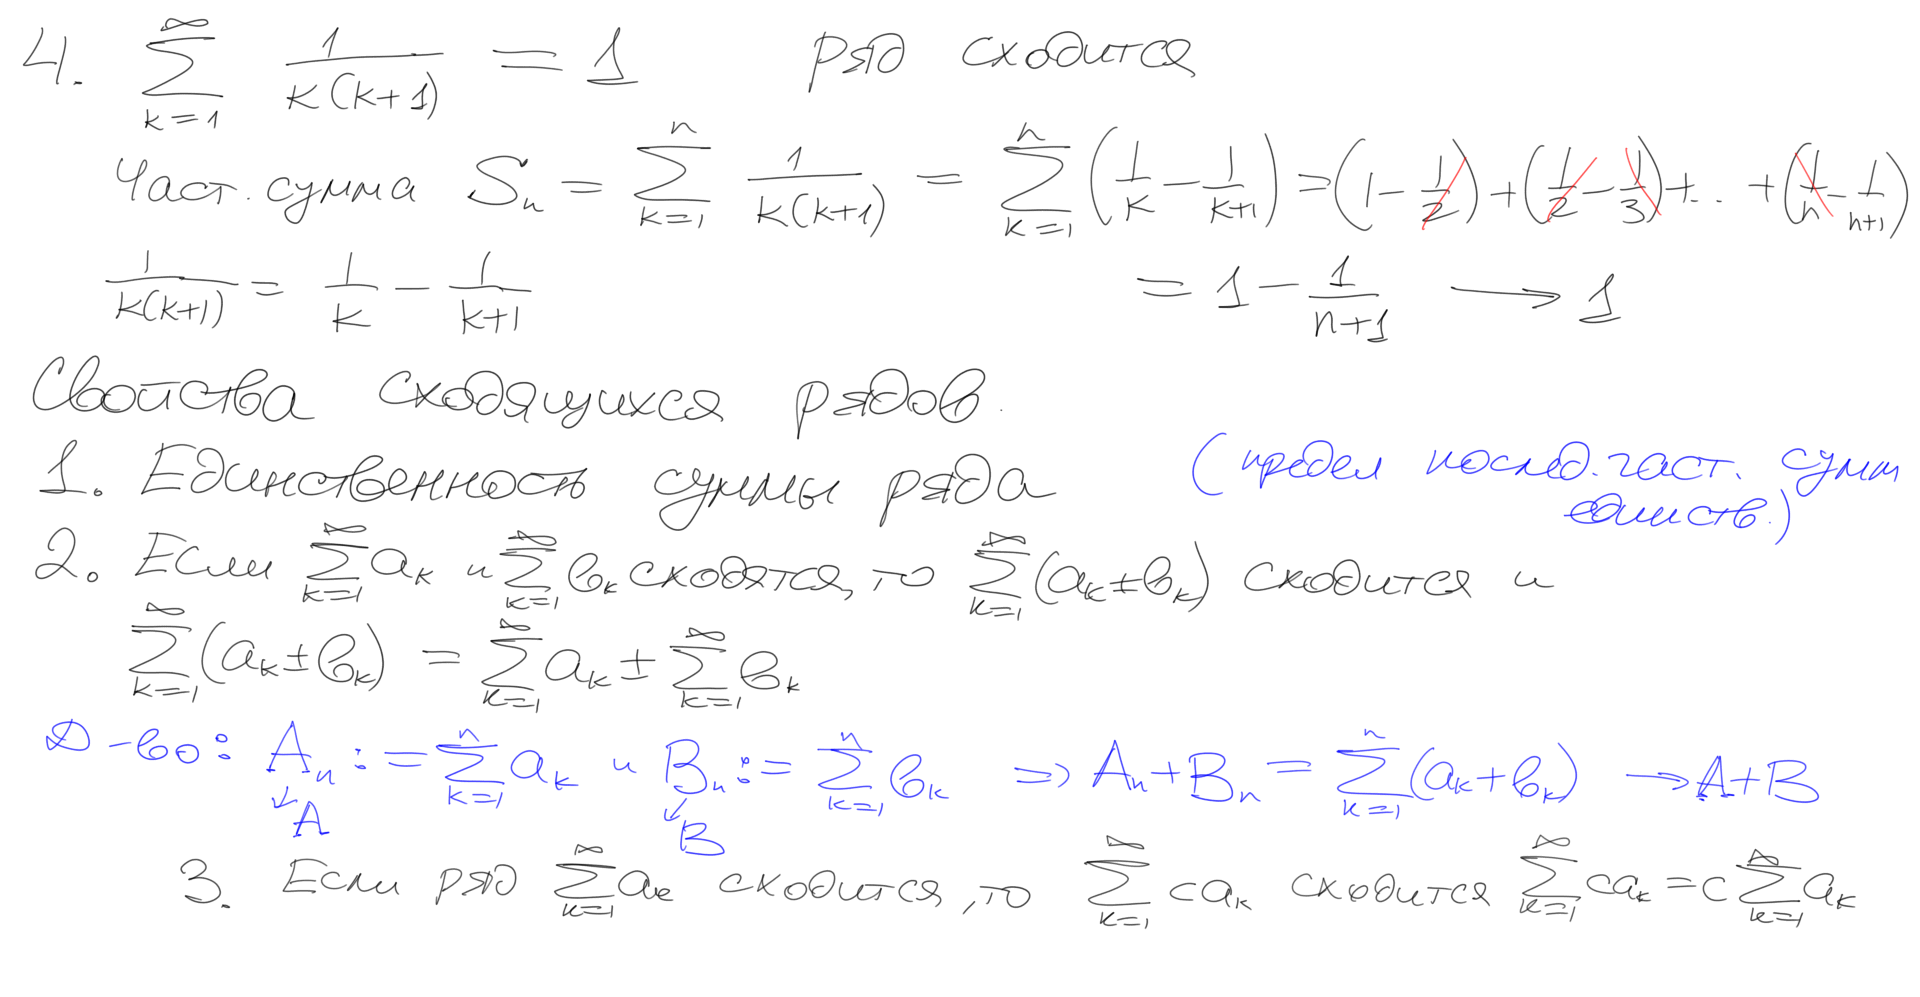 4. ∑_{k=1}^{∞} 1/(k(k+1)) = 1 ряд сходится
Част. сумма S_n = ∑_{k=1}^{n} 1/(k(k+1)) = ∑_{k=1}^{n} (1/k − 1/(k+1)) = (1 − 1/2) + (1/2 − 1/3) + ... + (1/n − 1/(n+1))
1/(k(k+1)) = 1/k − 1/(k+1) = 1 − 1/(n+1) → 1
Свойства сходящихся рядов.
1. Единственность суммы ряда (предел послед. част. сумм
единств.)
2. Если ∑_{k=1}^{∞} a_k и ∑_{k=1}^{∞} b_k сходятся, то ∑_{k=1}^{∞} (a_k ± b_k) сходится и
∑_{k=1}^{∞} (a_k ± b_k) = ∑_{k=1}^{∞} a_k ± ∑_{k=1}^{∞} b_k
Д-во: A_n := ∑_{k=1}^{n} a_k и B_n := ∑_{k=1}^{n} b_k ⇒ A_n + B_n = ∑_{k=1}^{n} (a_k + b_k) → A + B
↓ A ↓ B
3. Если ряд ∑_{k=1}^{∞} a_k сходится, то ∑_{k=1}^{∞} ca_k сходится ∑_{k=1}^{∞} ca_k = c ∑_{k=1}^{∞} a_k